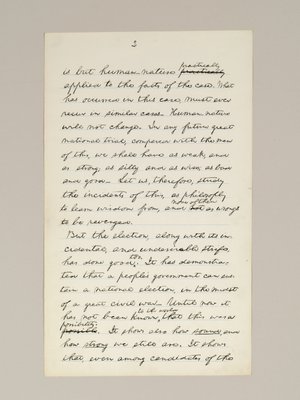 3
practically
is but human-nature practically
applied to the facts of the case. What
has occurred in this case, must ever
recur in similar cases. Human-nature
will not change. In any future great
national trial, compared with the men
of this, we shall have as weak, and
as strong; as silly and as wise; as bad
and good. Let us, therefore, study
the incidents of this, as philosophy
to learn wisdom from, and none of them as wrongs
to be revenged.
But the election, along with its in-
cidental, and undesirable strife,
has done good, too. It has demonstra-
ted that a people's government can sus-
tain a national election, in the midst
of a great civil war. Until now it
has not been known to the world that this was a
possibility.
possible. It shows also how sound, and
how strong we still are. It shows
that, even among candidates of the